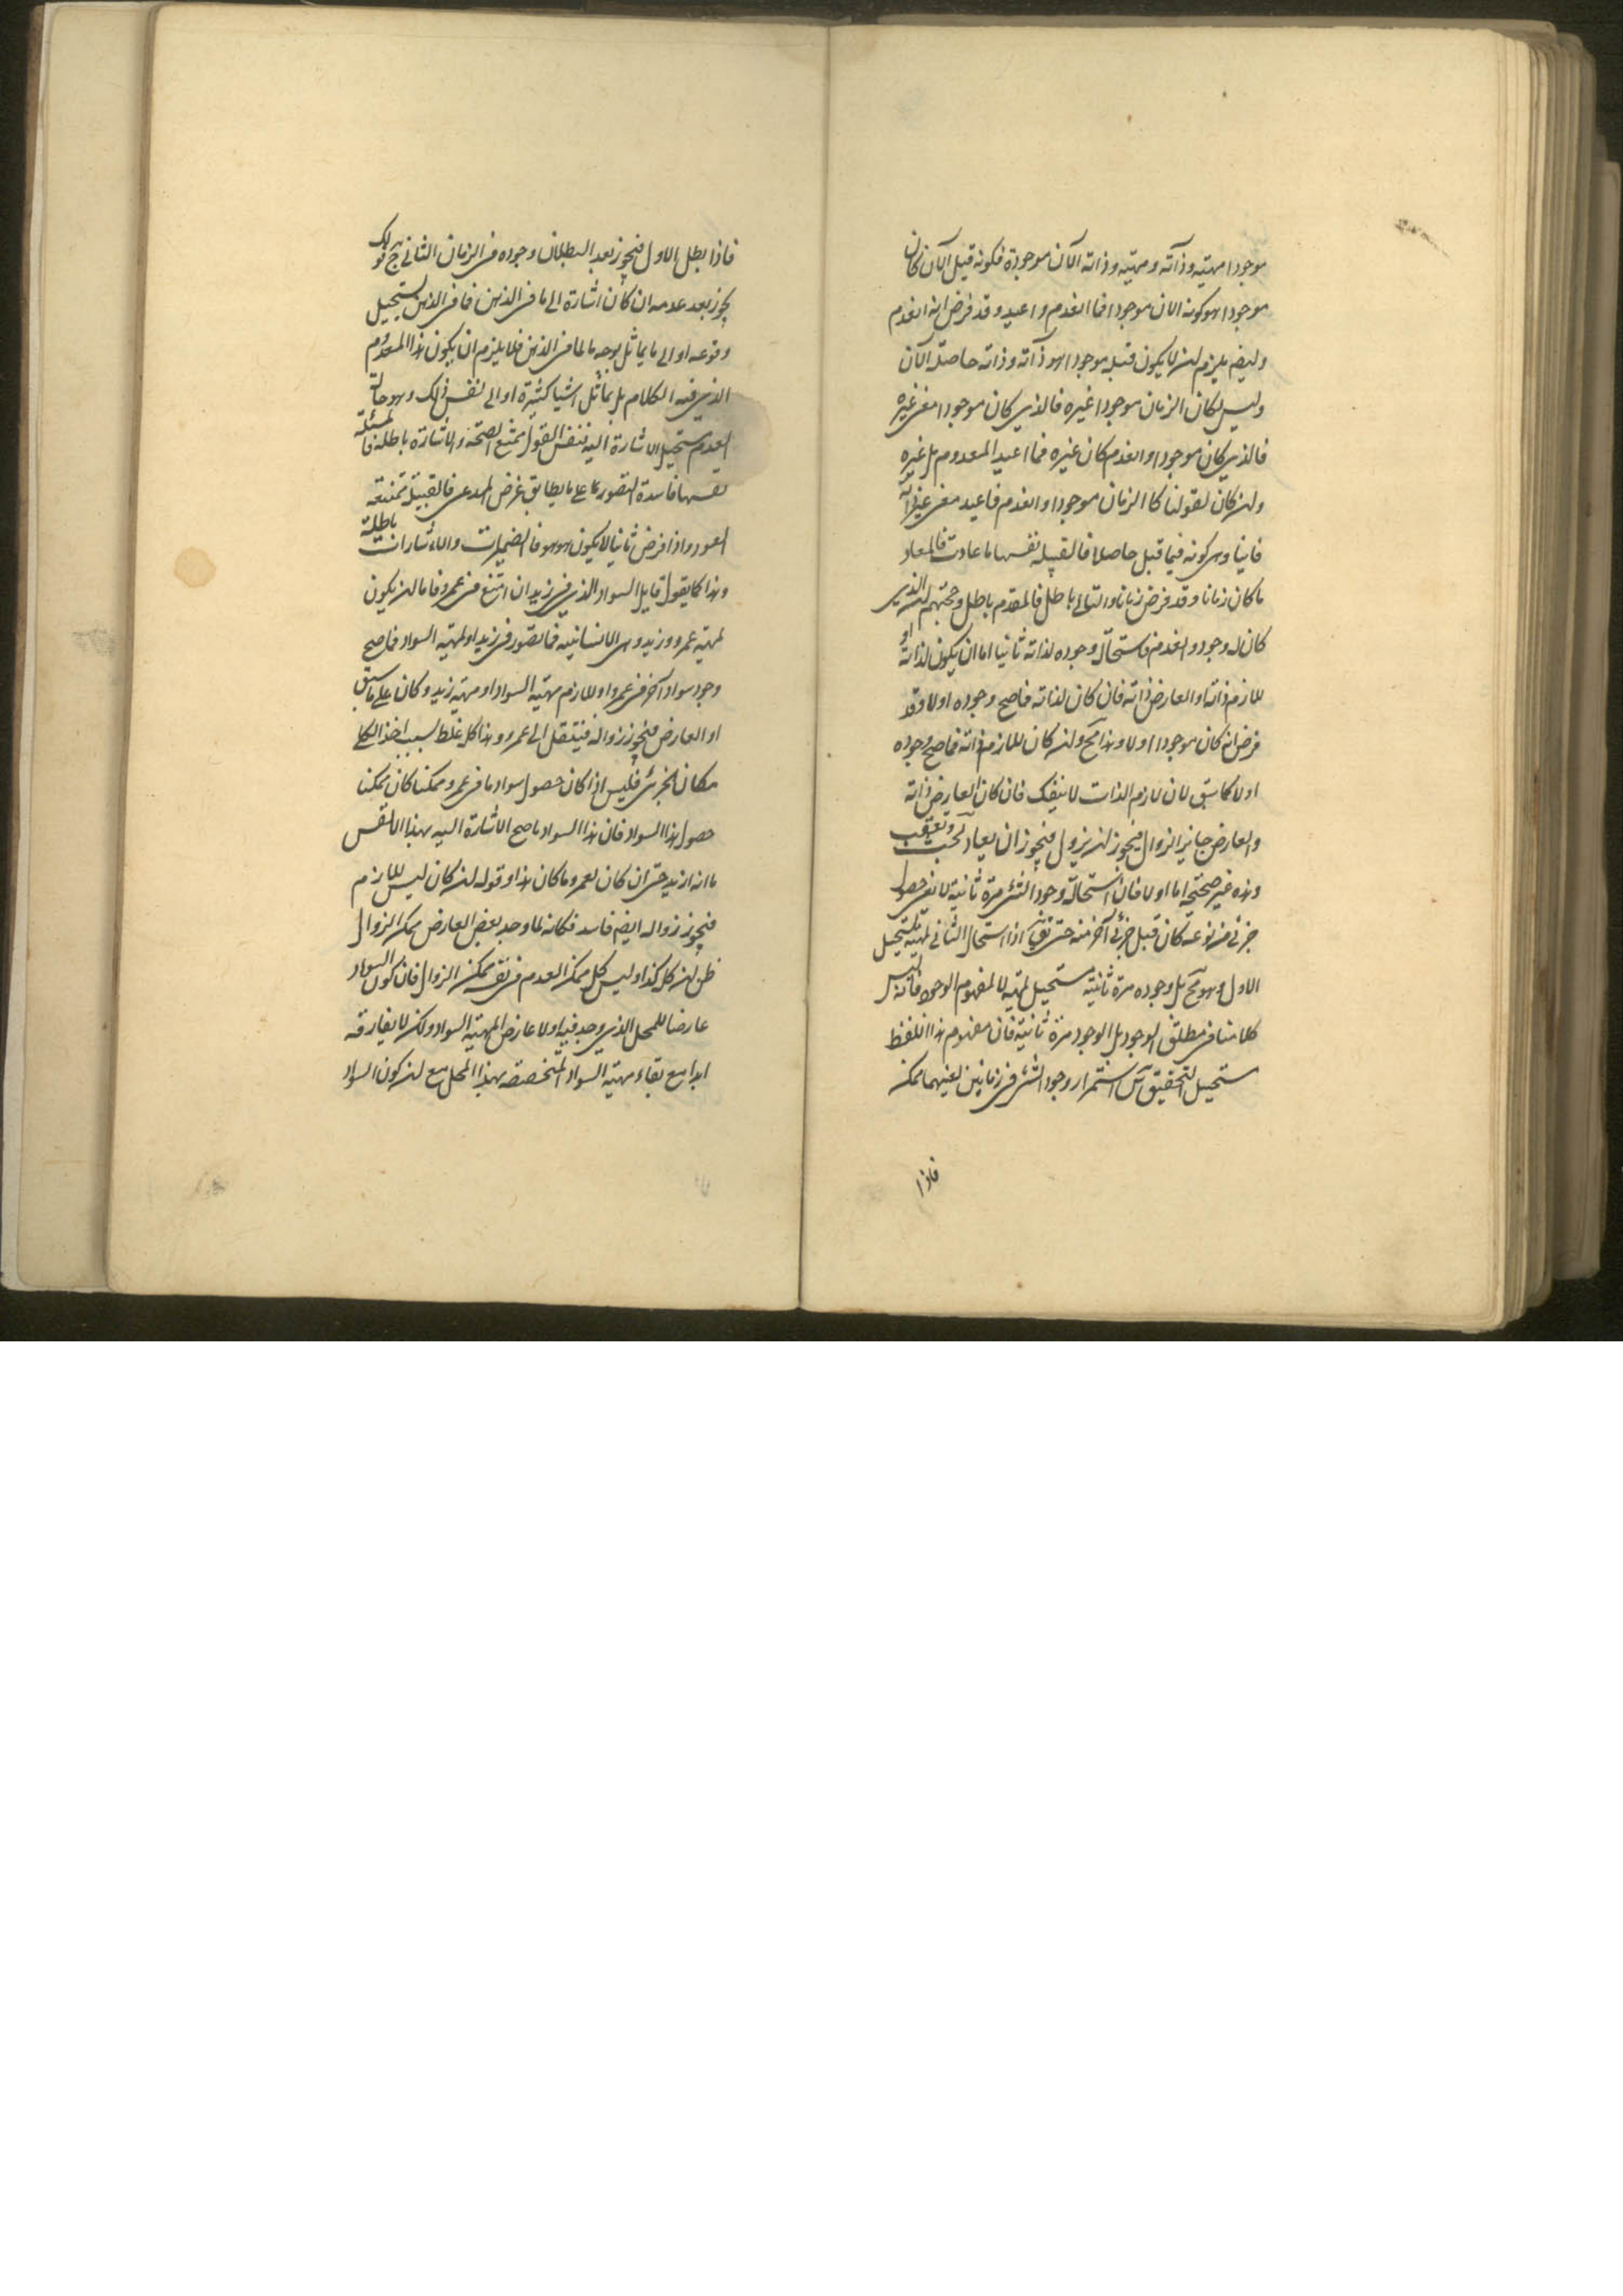 موجودا مهيته وذاته ومهيته وذاته الآن موجودة فكونه قبل الآن كان
موجودا هو كونه الان موجودا فما انعدم واعيد وقد فرض انه انعدم
وايضم يلزم ان لا يكون قبله موجودا هو ذاته وذاته حاصلة الآن
وليس لكان الزمان موجودا غيره فالذي كان موجودا مغى غيره
فالذي كان موجودا وانعدم كان غيره فما اعيد المعدوم بل غيره
وان كان لقولنا كا الزمان موجودا وانعدم فاعيد معنى غير ذاته
فانيا وهى كونه فيما قبل حاصلا فالقبيله نفسها ما عادت فالمعاد
ما كان زمانا وقد فرض زمانا والتالى باطل فالمقدم باطل وحجتهم ان الذى
كان له وجود وانعدم فاستحالة وجوده لذاته ثانيا اما ان يكون لذاته او
للازم ذاته او العارض ذاته فان كان لذاته فما صح وجوده اولا وقد
فرض انه كان موجودا اولا وهذا مح وان كان للازم ذاته فما صح وجوده
اولا كما سبق لان لازم الذات لا ينفك فان كان لعارض ذاته
والعارض جايز الزوال فيجوز ان يزول فيجوز ان يعاد
وهذه غير صحتة اما اولا فان استحالة وجود الشئ مرة ثانية لا نعى حصول
جزئى من نوعه كان قبل جزئى آخر منه حتى يق اذا استحال الثانى لمهيته يستحيل
الاول وهو مح بل وجوده مرة ثانية مستحيل لمهيته لا لمفهوم الوجود فانه ليس
كلامنا فى مطلق الوجود بل الوجود مرة ثانية فان مفهوم هذا اللفظ
مستحيل التحقيق استمرار وجود الشئ فى زمانين بعينهما ممكن
فاذا
فاذا بطل الاول فيجوز بعد البطلان وجوده فى الزمان الثانى ج قولك
يجوز بعد عدمه ان كان اشارة الى ما فى الذهن فما فى الذهن يستحيل
وقوعه او الى ما يماثل بوجه ما لما فى الذهن فلا يلزم ان يكون هذا المعدوم
الذى فيه الكلام بل يماثل اشيا كثيرة او الى نفس ذلك وهو حالة
العدم يستحيل الاشارة اليه فنفس القول ممتنع الصحة والاشارة باطلة فالمسئلة
نفسها فاسدة التصور لا على ما يطابق غرض المدعى فالقبيلة ممتنعة
العود واذا فرض ثانيا لا يكون هو هو فالضميرات والاشارات باطلة
وهذا كما يقول قايل السواد الذى فى زيد ان امتنع فى عمرو فاما ان يكون
لمهية عمرو وزيد وهى الانسانيه فما تصور فى زيد او لمهية السواد فما صح
وجود سواد آخر فى عمرو او للازم مهية السواد او مهية زيد وكان على ما سبق
او العارض فيجوز زواله فينتقل الى عمرو وهذا كله غلط بسبب اخذ الكلى
مكان الجزئى فليس اذا كان حصول سواد ما فى عمرو ممكنا كان ممكنا
حصول هذا السواد فان هذا السواد ما صح الاشارة اليه بهذا الا لنفس
ما انه لزيد حتى ان كان لعمرو ما كان هذا وقوله ان كان ليس للازم
فيجوز زواله ايضم فاسد فكانه لما وجد بعض العارض ممكن الزوال
ظن ان كل كذا وليس كل ممكن العدم فى نفسه ممكن الزوال فان كون السواد
عارضا للمحل الذى وجد فيه اولا عارض لمهية السواد ولكن لا يفارقه
ابدا مع بقاء مهية السواد المتخصصه بهذا المحل مع ان كون السواد